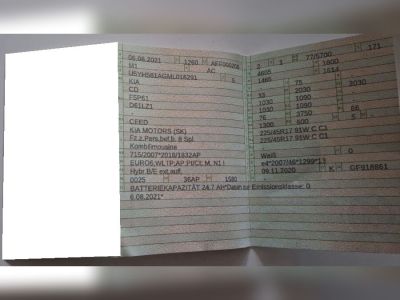 06.08.2021 1260
M1 AC
6
KIA
CD
F5P61
D61LZ1
CEED
KIA MOTORS (SK)
Fz.z.Pers.bef.b. 8 Spl.
Kombilimousine
715/2007*2018/1832AP
EURO6,WLTP,AP,PI/CI, M, N1 I
Hybr.B/E ext.aufl.
0025 36AP 1580
BATTERIEKAPAZITÄT 24,7 AH*Datum zur Emissionsklasse: 0
6.08.2021*
2 1 77/5700 171
4605 1800
1465 1614
75 3030
33 2030
1030 1090
1030 1090
76 3750 66
1300 600 5
225/45R17 91W C C1
225/45R17 91W C C1
Weiß 0
09.11.2020 K GF918861